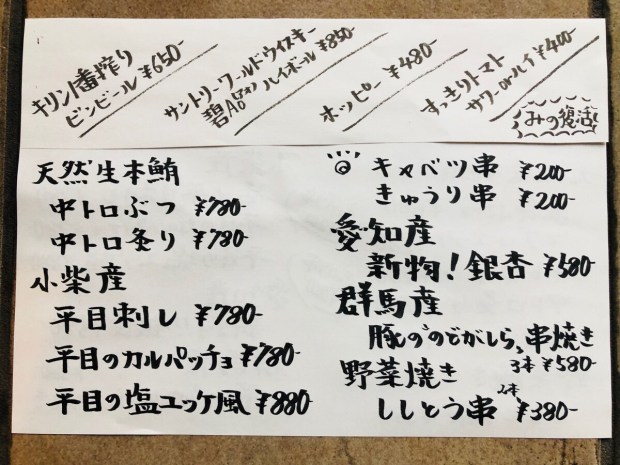 キリン1番搾り
ビンビール ¥650-
サントリーワールドウイスキー
碧Ao(アオ)ハイボール ¥850-
ホッピー ¥480-
すっきりトマト
サワーorハイ ¥400-
みの復活!
天然生本鮪
中トロぶつ ¥780-
中トロ炙り ¥780-
小柴産
平目刺し ¥780-
平目のカルパッチョ ¥780-
平目の塩ユッケ風 ¥880-
キャベツ串 ¥200-
きゅうり串 ¥200-
愛知産
新物!銀杏 ¥580-
群馬産
豚の"のどがしら"串焼き
3本 ¥580-
野菜焼き
ししとう串 2本 ¥380-